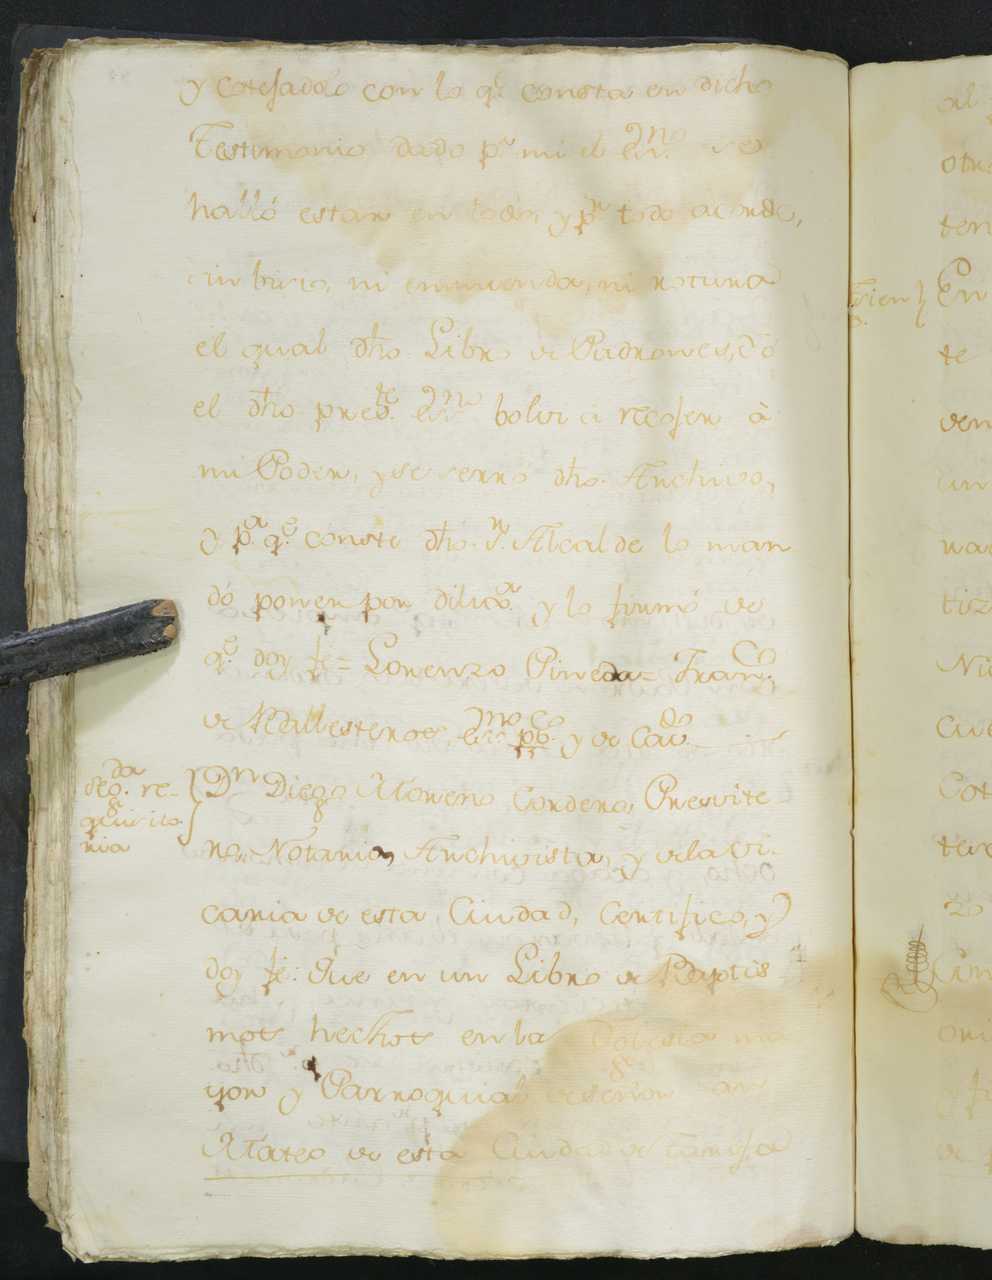 y cotejadolo con lo q.e consta en dicho
Testimonio dado p.r mi el ess.no se
halló estar en todo, y p.r todo acorde,
sin bicio, ni enmienda, ni rotura
el qual dho. Libro de Padrones, Yó
el dho preste. ess.no bolvi á recojer à
mi Poder, y se serró dho. Archivo,
y p.a q.e conste dho. S.r Alcalde lo man
dó poner por dilig.a y lo firmó de
q.e doy fe = Lorenzo Pineda = Fran.co
de Ballesteros ess.no pb.co y de Cav.do
Seg.da re-
quisito
ria
D.n Diego Moreno Cordero, Presvite
ro, Notario, Archivista, y de la Vi-
caria de esta Ciudad, Certifico, y
doy fe: Que en un Libro de Baptis
mos hechos en la Yglesia ma
yor y Parroquial de señor San
Mateo de esta Ciudad de Tarifa
al
otr
ten
En
te
ven
sin
nac
tiz
Nic
Ciu
Cot
ter
20
Cim
ori
y fi
de p